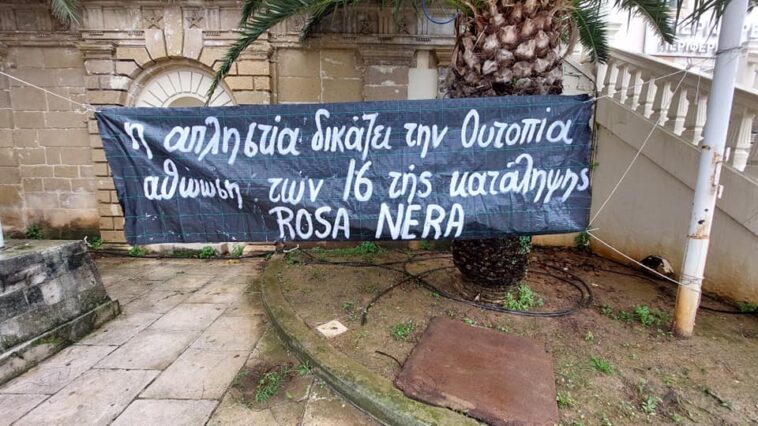 Η απληστία δικάζει την Ουτοπία
αθώωση των 16 της κατάληψης
ROSA NERA